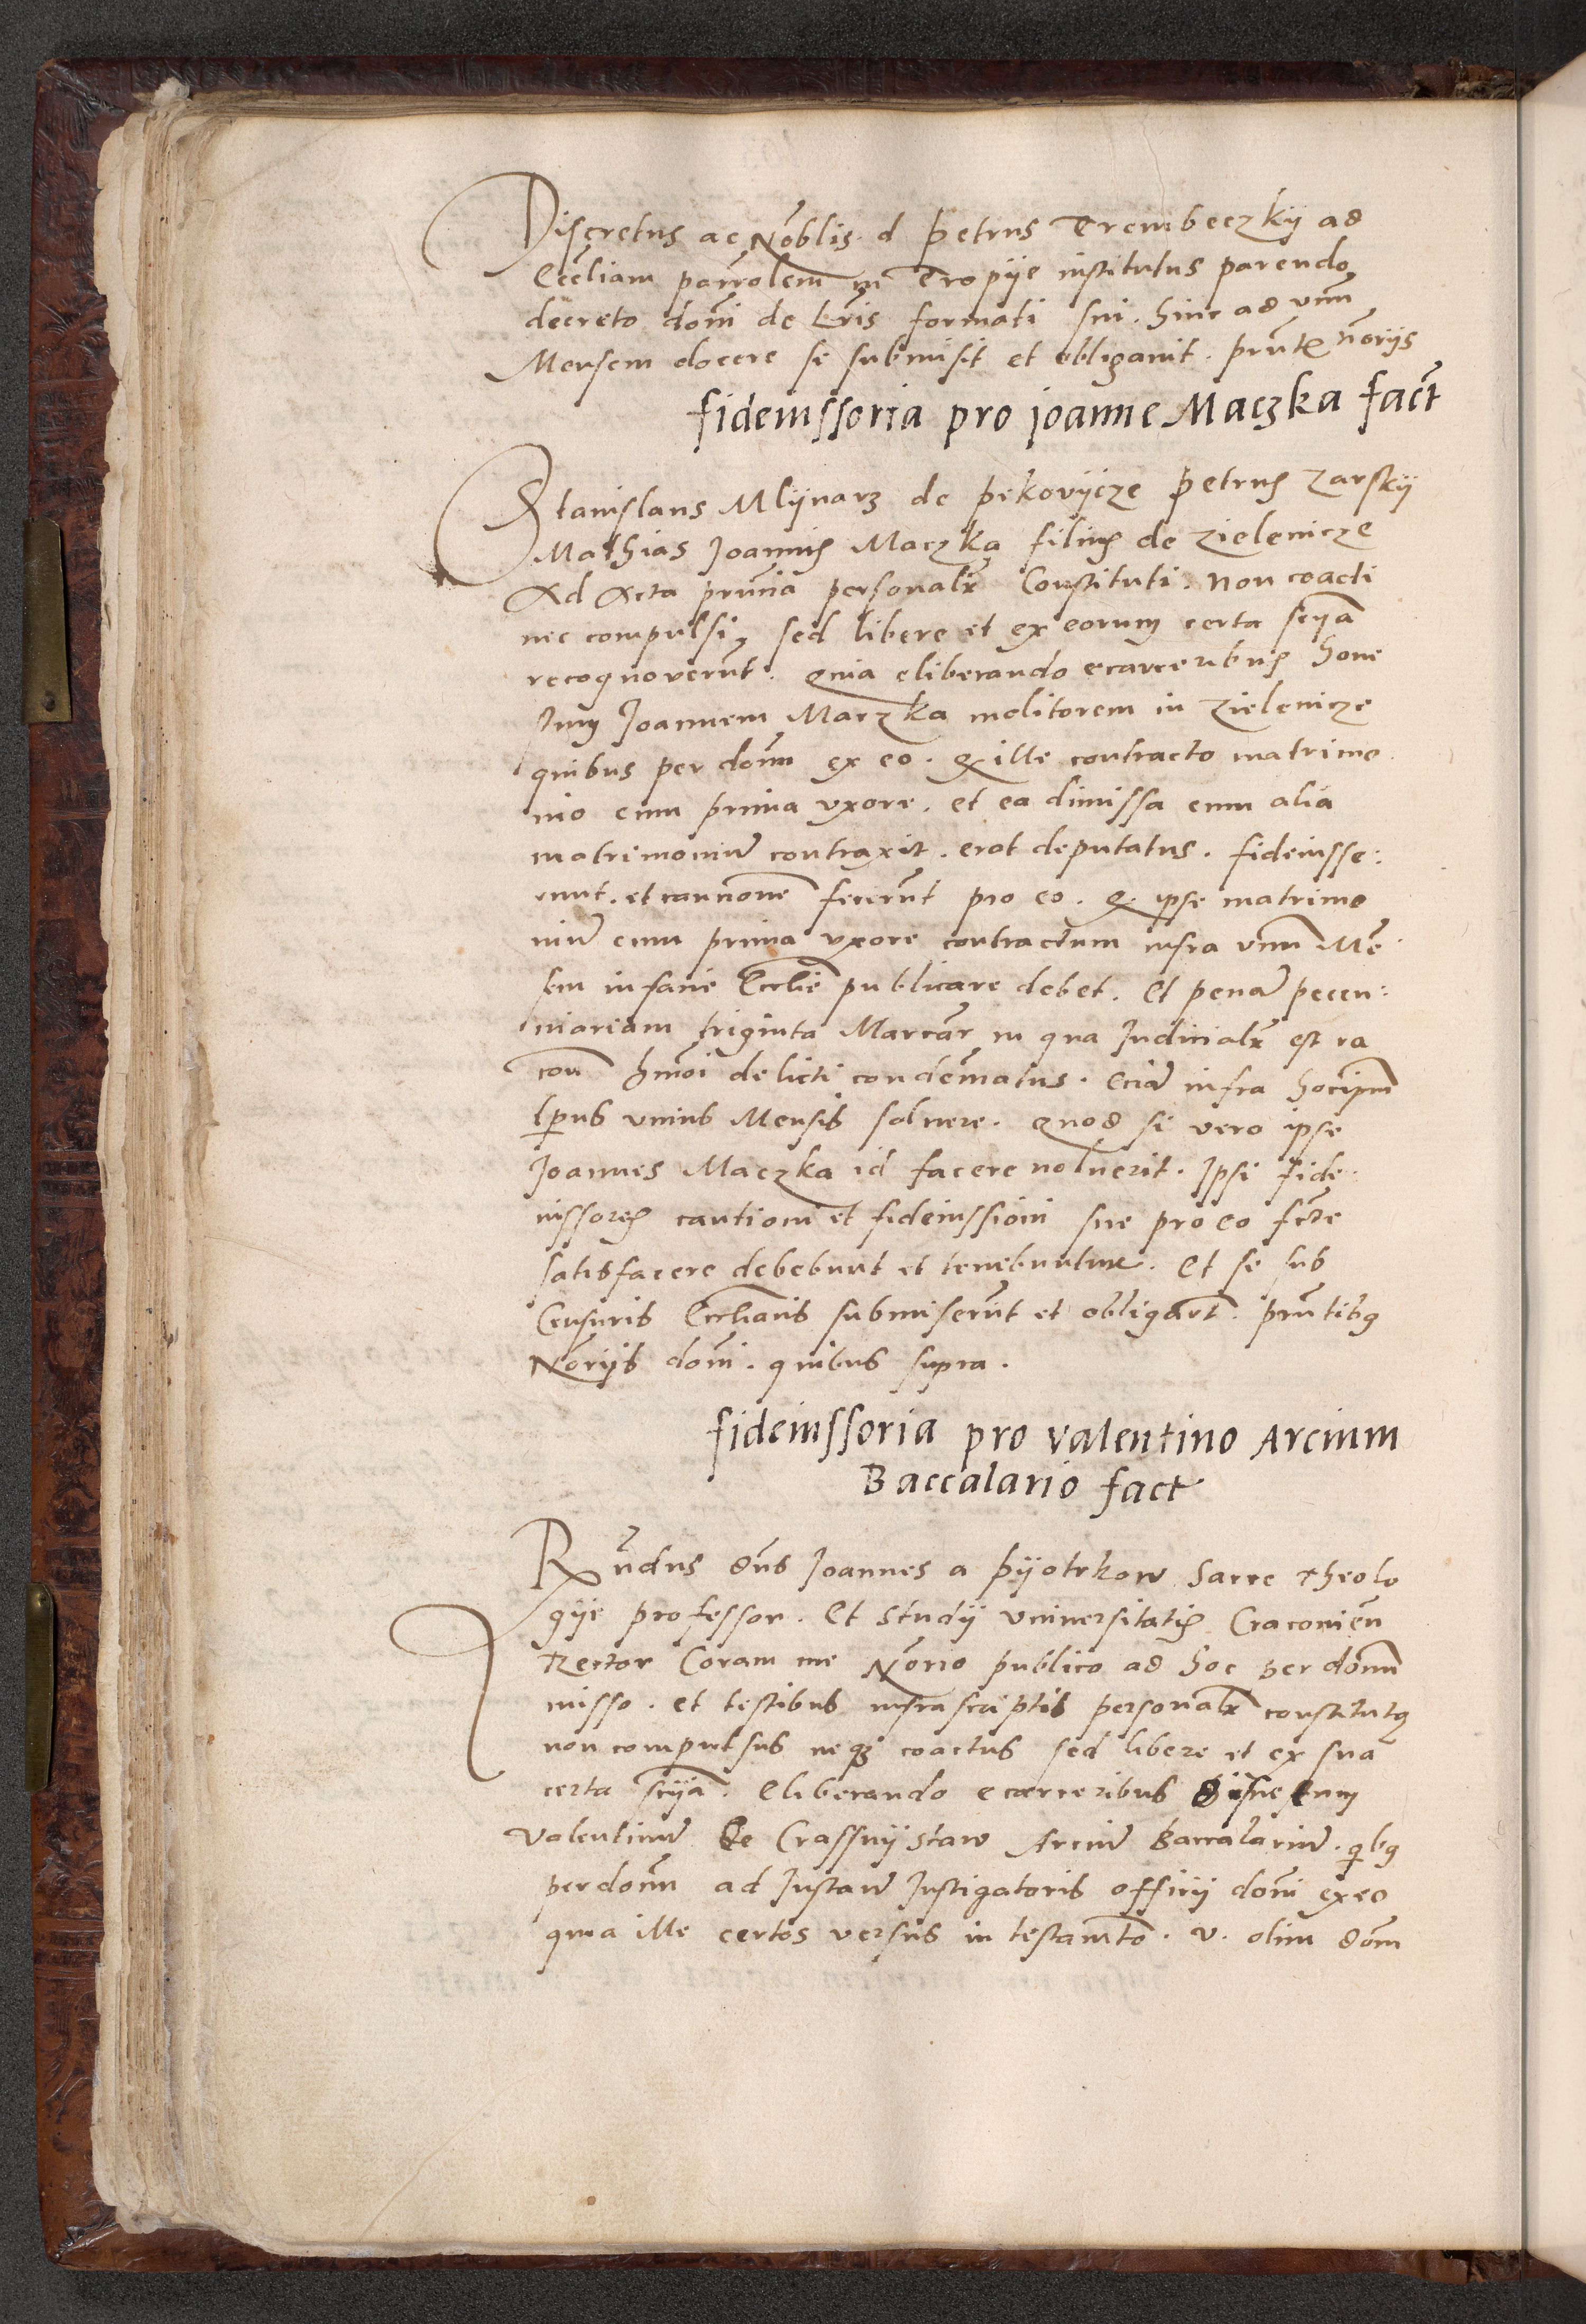 Discretus ac Nobilis d Petrus Trembeczkÿ ad
Eccliam parrolem in Tropÿe institutus parendo
decreto domi de Lris formati sui. hinc ad unu
Mensem docere se submisit et obligavit. pñtẽ nõrÿs
fideiussoria pro joanne Maczka fact
Stanislaus Mlÿnarz de Pekovÿcze Petrus Zarskÿ
Mathias Joannis Maczka filius de Zielenicze
Ad Acta pñtia personalr Constituti. Non coacti
nec compulsi, sed libere et ex eorum certa scÿa
recognoverũt. quia eliberando e carceribus hone
stum Joannem Maczka molitorem in Zielenicze
quibus per doñu ex eo. q ille contracto matrimo
nio cum prima uxore. et ea dimissa cum alia
matrimoniũ contraxit. erat deputatus. fideiusse:
runt. et cautione fecerũt pro eo. q. ipse matrimo
niũ cum prima uxore contractum infra unũ Mẽ
sem in facie Ecclie publicare debet. Et penã pecun:
niariam triginta Marcar in qua Judicialr est ra
con hmoi delicti condẽmatus. eciã infra hocipm
tpus unius Mensis solvere. Quod si vero ipse
Joannes Maczka id facere noluerit. Ipsi fide
iussores cautioni et fideiussioni sue pro eo fcte
satisfacere debebunt et tenebuntur. Et se sub
Censuris Eccliacis submiserũt et obligarũt. pñtibus
Nõrÿs domi. quibus supra.
fideiussoria pro valentino Arcium
Baccalario fact
Rñdus dñs Joannes a Pÿotrkow Sacre Theolo
gÿe professor. Et Studÿ universitatis Cracovieñ
Rector Coram me Nõrio publico ad hoc per domũ
misso. et testibus infrascriptis personalr constitutus
non compulsus neqz coactus sed libere et ex sua
certa scÿa. Eliberando e carceribus discretum
Valentinũ de Crassnÿstaw Arciũ Baccalariũ. qibus
per doñu ad Instanẽ Instigatoris officÿ domi ex eo
quia ille certos versus in testamto. v. olim dom